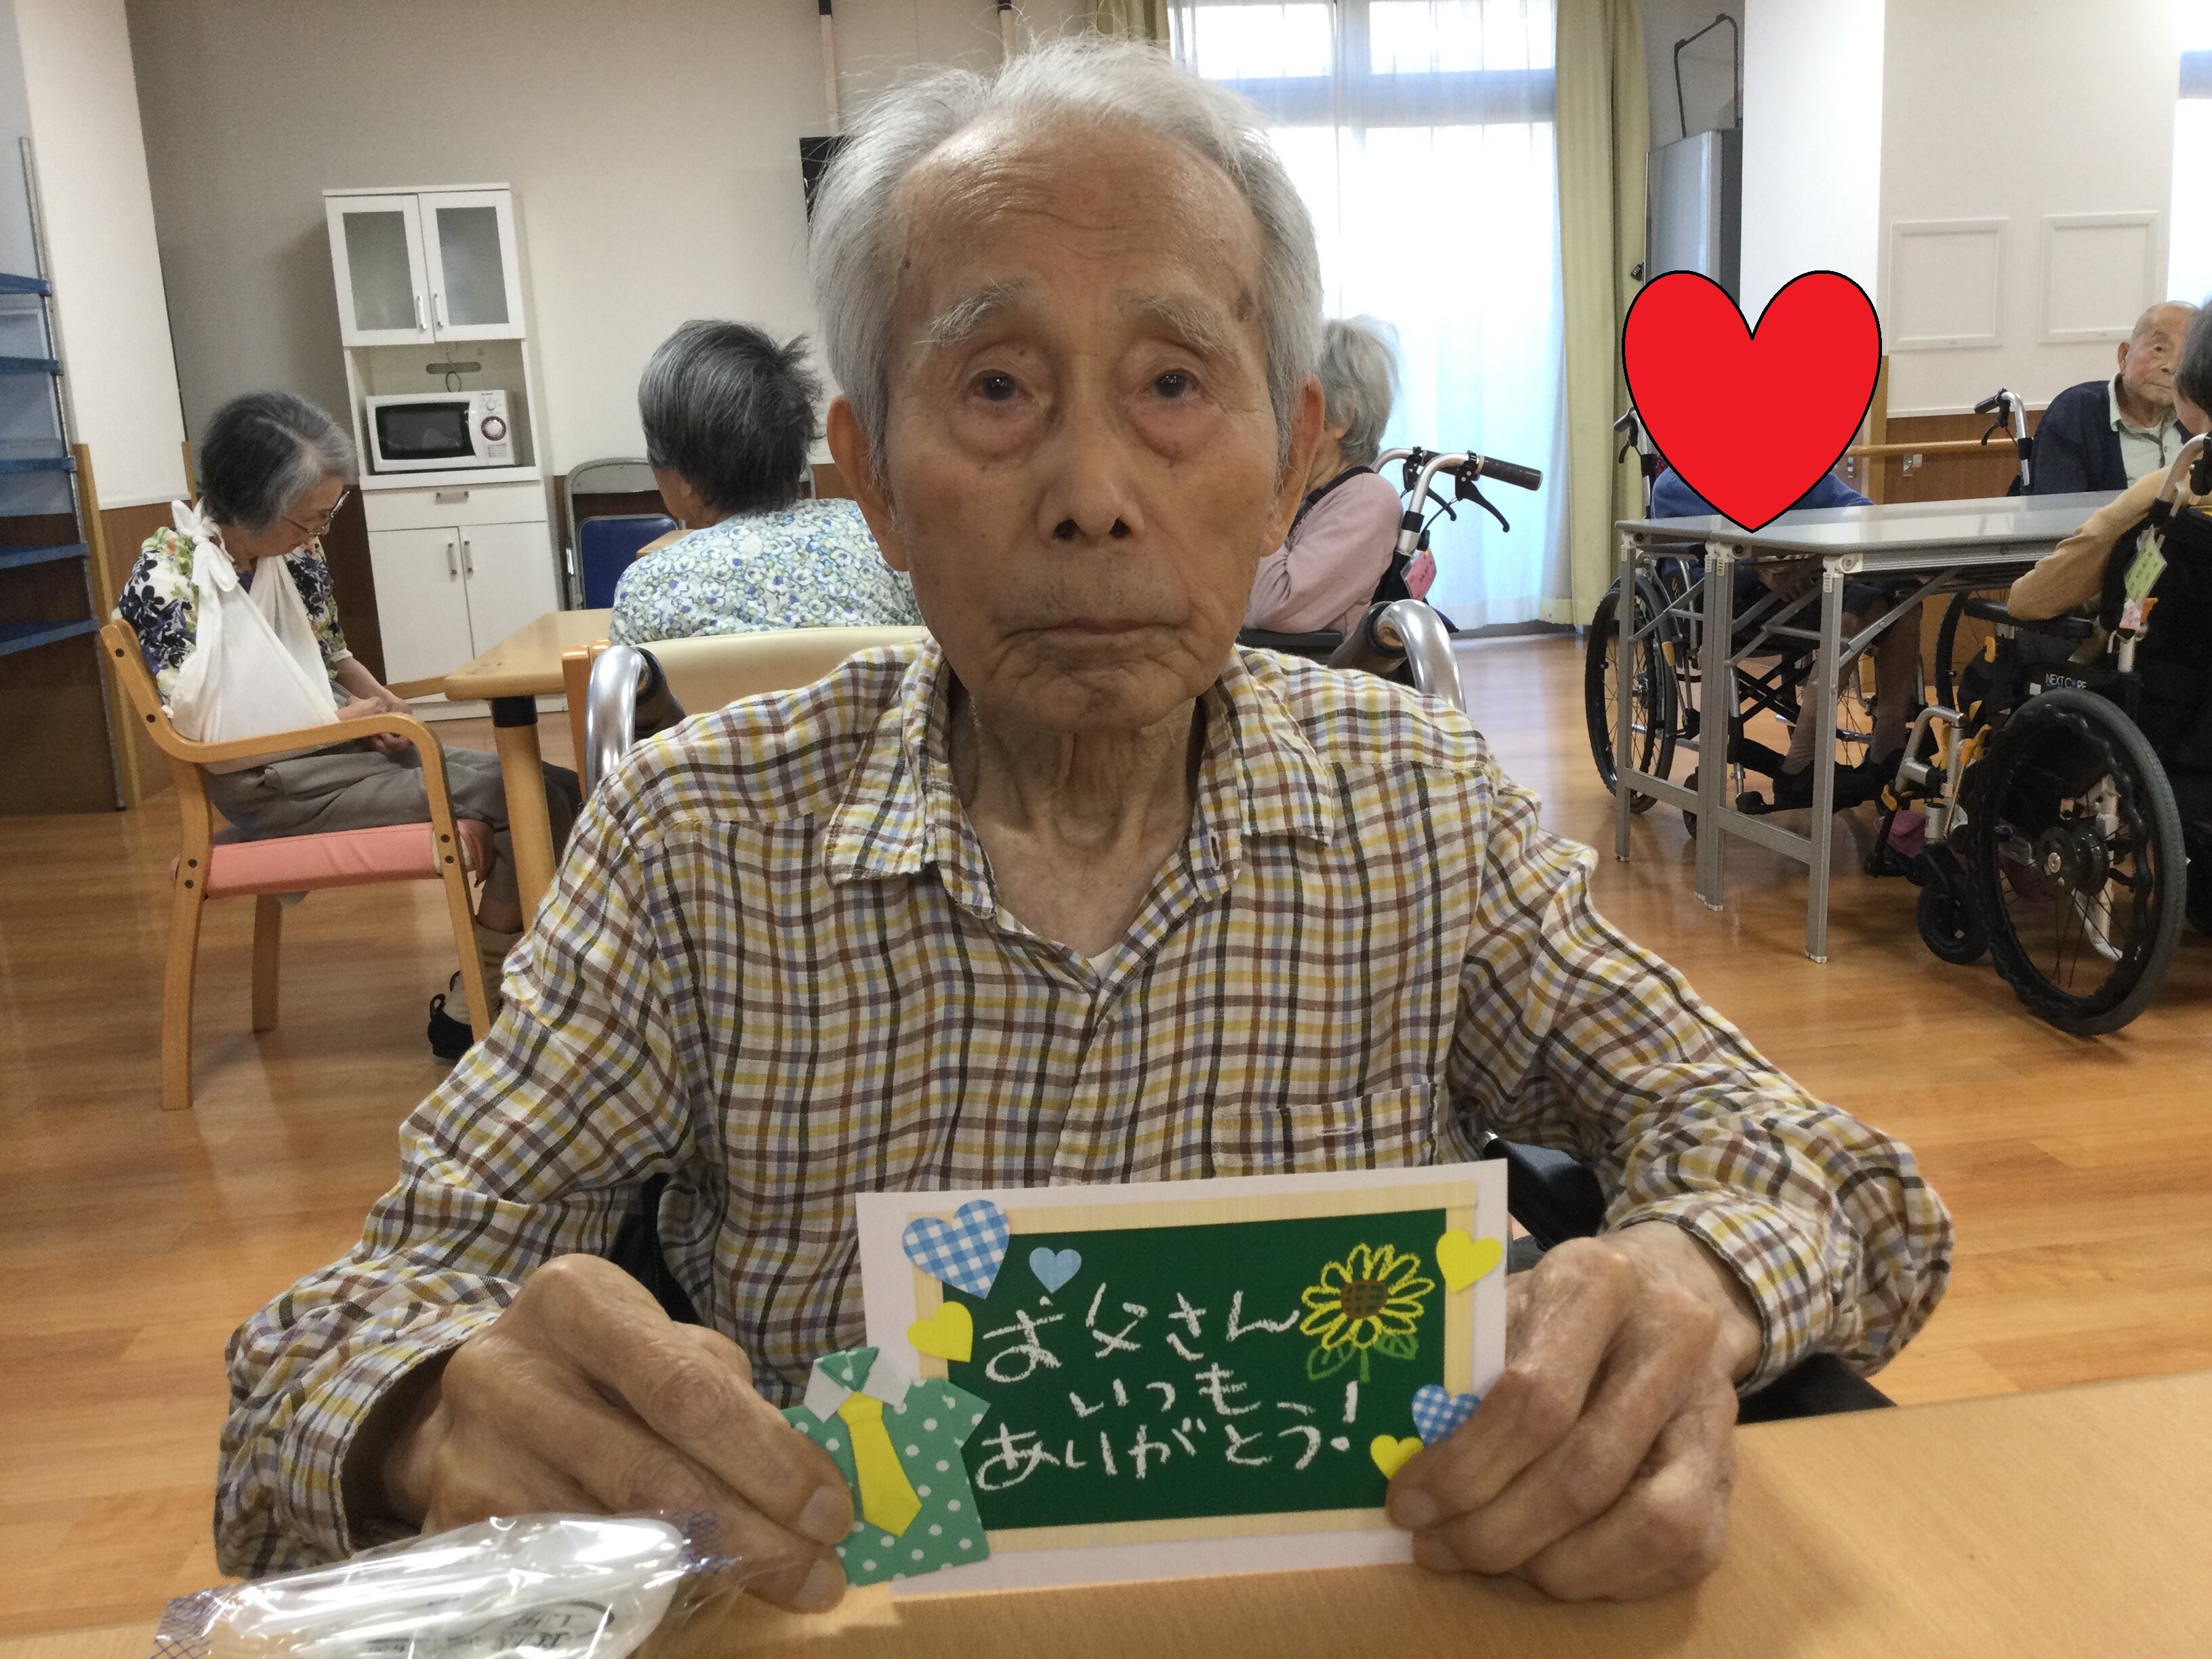 お父さん
いつも
ありがとう!
NEXT CORE